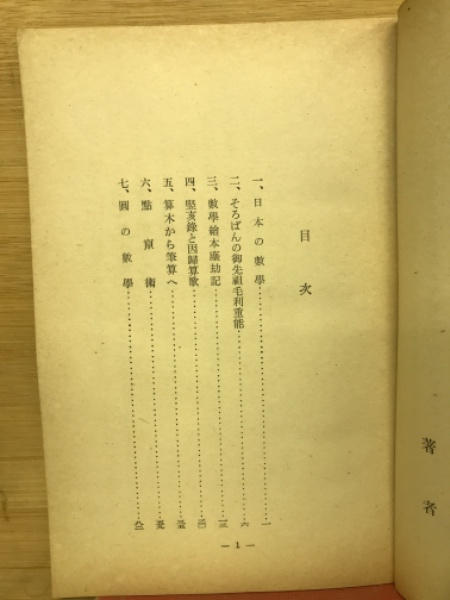 著者
目次
一、日本の數學………一
二、そろばんの御先祖毛利重能………六
三、數學繪本塵劫記………
四、堅亥錄と因歸算歌………
五、算木から筆算へ………
六、點竄術………
七、圓の數學………
— 1 —